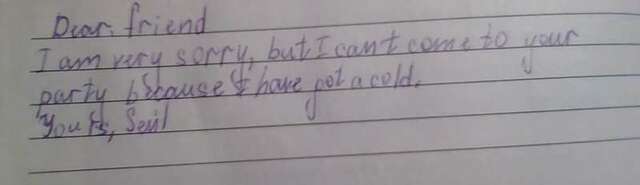 Dear friend
I am very sorry, but I can't come to your
party because I have got a cold.
Yours, Sevil